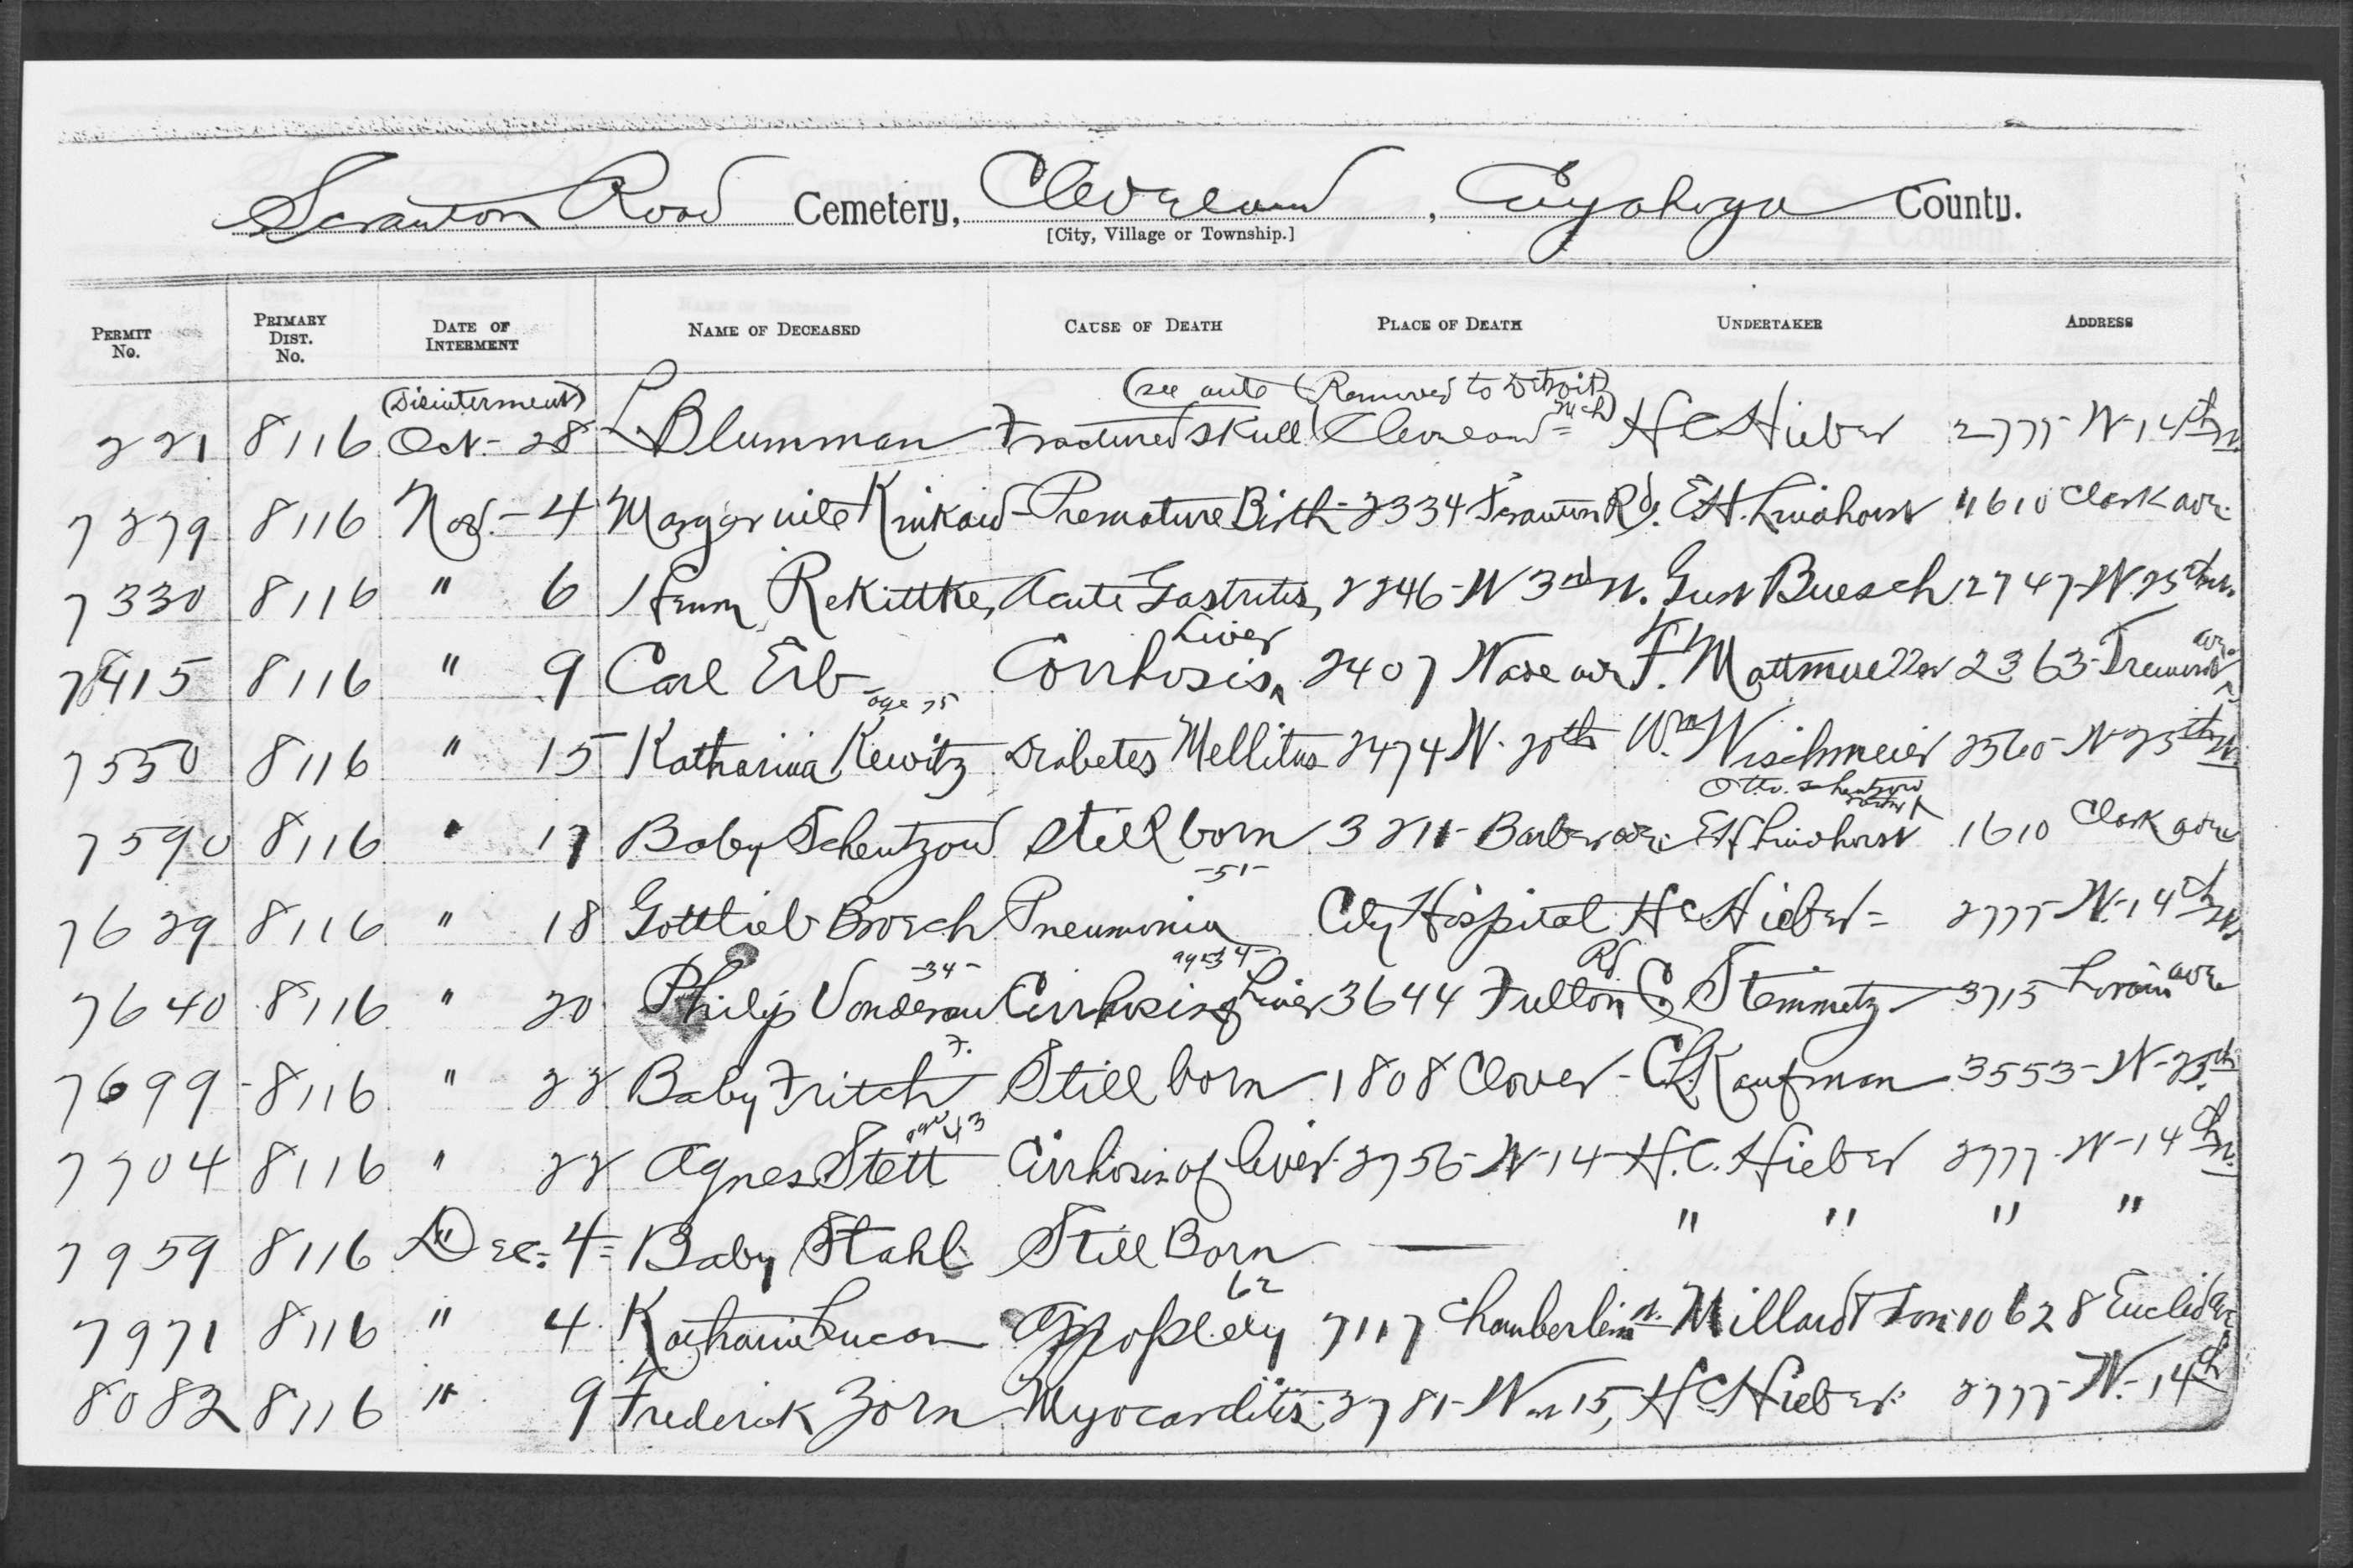 Scranton Road Cemetery, Cleveland, Cuyahoga County.
[City, Village or Township.]
Permit No. Primary Dist. No. Date of Interment Name of Deceased Cause of Death Place of Death Undertaker Address
(Disinterment) (see ante (Removed to Detroit Mch)
221 8116 Oct- 28 L Blumman Fractured skull Cleveland = H C Hieber 2775 W-14th
7279 8116 Nov.- 4 Marguerite Kinkaid- Premature Birth- 2334 Scranton Rd. E H. Lindhorst 1610 Clark ave.
7330 8116 " 6 Rekittke, Acute Gastritis, 2246- W 3rd Gust Buesch 2747- W. 25th
Liver
7415 8116 " 9 Carl Erb- age 75 Corrhosis 2407 Wade ave F. Mattmueller 2363- Tremont ave.
7550 8116 " 15 Katharina Kewitz Diabetes Mellitus 2474 W. 20th Wm Wischmeier 2560- W 25th
Otto. Schentzow
7590 8116 " 17 Baby Schentzow Still born 3211- Barber ave. E H Lindhorst 1610 Clark ave
-51-
7629 8116 " 18 Gottlieb Broech Pneumonia City Hospital H C. Hieber- 2775- W.-14th
-34- age 34- Rd
7640 8116 " 20 Philip Vonderau Cirrhosis of Liver 3644 Fulton C Steinmetz 3715 Lorain ave
F.
7699- 8116 " 22 Baby Fritch Still born 1808 Clover- C L. Kaufman 3553- W- 25th
age 43
7704 8116 " 22 Agnes Stett Cirrhosis of liver- 2756- W-14- H. C. Hieber 2777- W-14th
7959 8116 Dec. 4= Baby Stahl Still Born — " " " "
62
7971 8116 " 4. Katharine Lucan Appoplexy 7117 Chamberlin Millard Son 10628 Euclid ave.
8082 8116 " 9 Frederick Zorn Myocarditis- 2781- W 15, H C Hieber. 2775- W.-14th